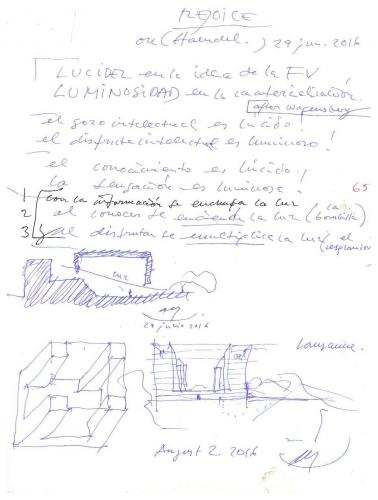 REJOICE
on (Haendel.) 29 jun. 2016
LUCIDEZ en la idea de la FV
LUMINOSIDAD en la materialización.
after Wagensberg
el gozo intelectual es lúcido!
el disfrute intelectual es luminoso!
el conocimiento es lúcido!
la sensación es luminosa.
65
1 con la información se enchufa la luz
2 al conocer se enciende la luz (la bombilla)
3 y al disfrutar se multiplica la luz (el resplandor)
luz
29 julio 2016
Lausanne.
August 2. 2016